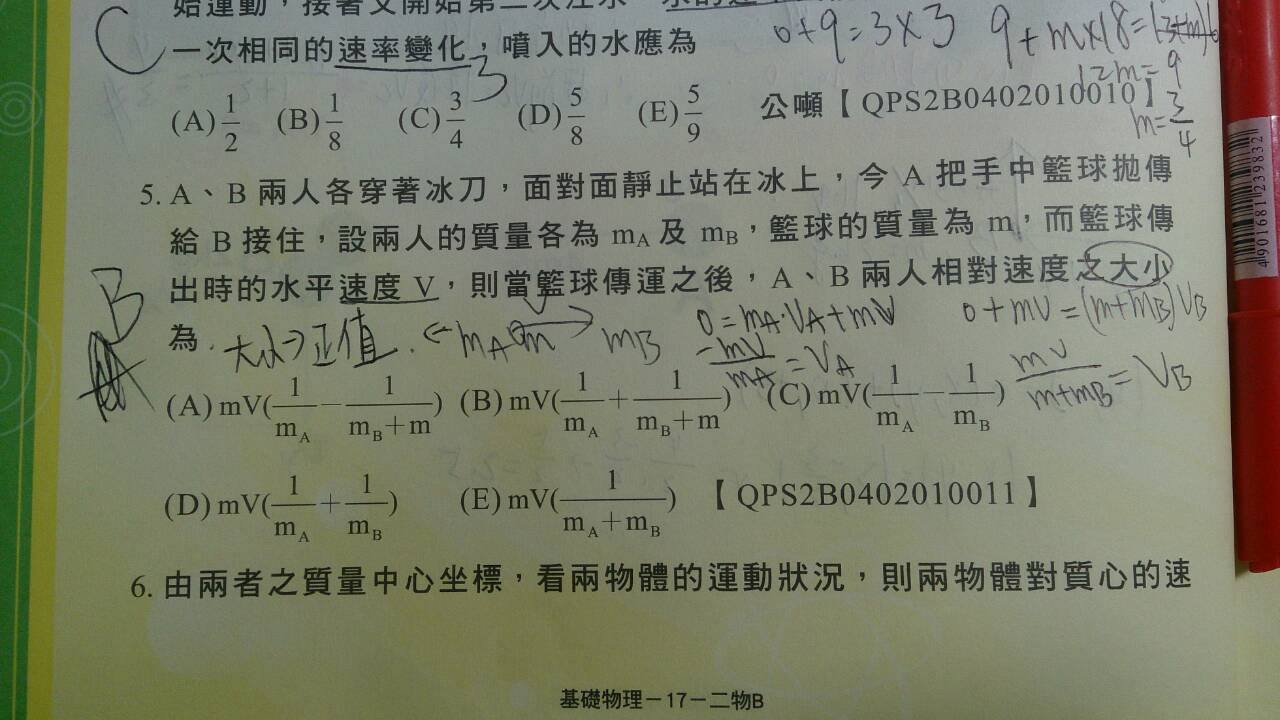 始運動，接著又開始第二次注水
一次相同的速率變化，噴入的水應為
0+9=3×3
9+m×18=(3+m)6
12m=9
m=3/4
C
3
(A) 1/2 (B) 1/8 (C) 3/4 (D) 5/8 (E) 5/9 公噸【QPS2B0402010010】
5. A、B 兩人各穿著冰刀，面對面靜止站在冰上，今 A 把手中籃球拋傳
給 B 接住，設兩人的質量各為 mA 及 mB，籃球的質量為 m，而籃球傳
出時的水平速度 V，則當籃球傳運之後，A、B 兩人相對速度之大小
為
B
大小→正值
V
← mA m → mB
0=mA·VA+mV
-mV/mA=VA
0+mV=(m+mB)VB
mV/m+mB=VB
(A) mV(1/mA−1/mB+m) (B) mV(1/mA+1/mB+m) (C) mV(1/mA−1/mB)
(D) mV(1/mA+1/mB) (E) mV(1/mA+mB) 【QPS2B0402010011】
6. 由兩者之質量中心坐標，看兩物體的運動狀況，則兩物體對質心的速
基礎物理－17－二物B
4901681239832